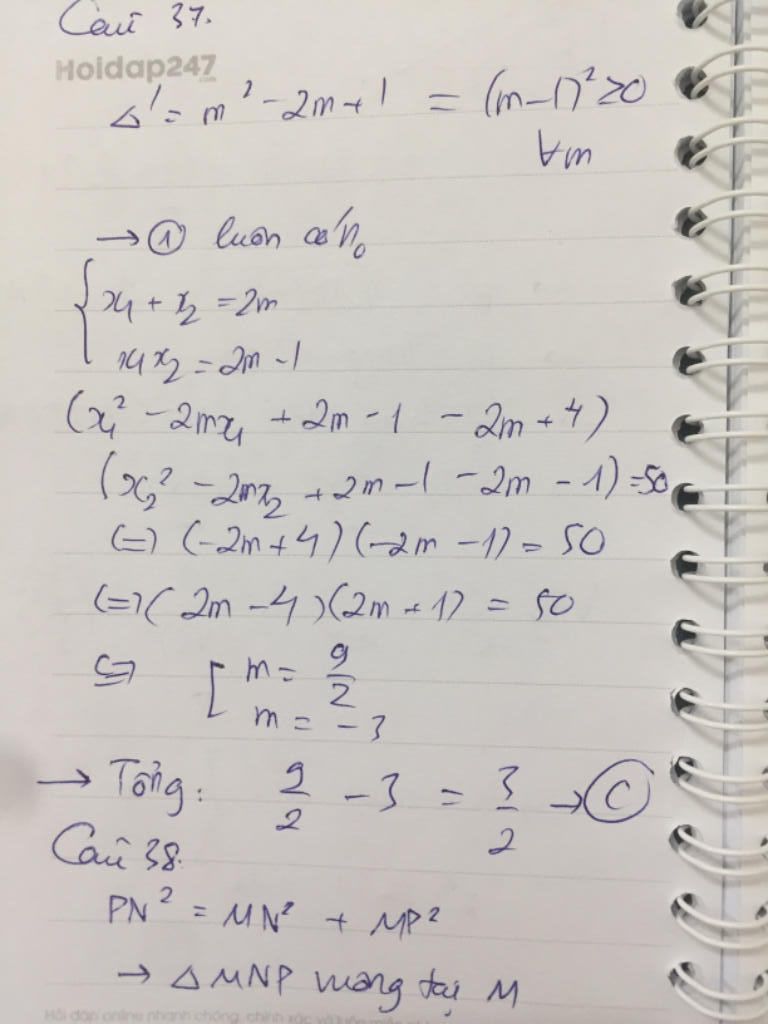 Câu 37.
Hoidap247
Δ' = m² - 2m + 1 = (m-1)² ≥ 0
∀m
→ ① luôn có n₀
{ x₁ + x₂ = 2m
x₁x₂ = 2m - 1
(x₁² - 2mx₁ + 2m - 1 - 2m + 4)
(x₂² - 2mx₂ + 2m - 1 - 2m - 1) = 50
(=) (-2m + 4)(-2m - 1) = 50
(=) (2m - 4)(2m + 1) = 50
⇔ [ m = 9/2
m = -3
→ Tổng: 9/2 - 3 = 3/2 → Ⓒ
Câu 38.
PN² = MN² + MP²
→ Δ MNP vuông tại M
Hỏi đáp online nhanh chóng, chính xác và luôn miễn